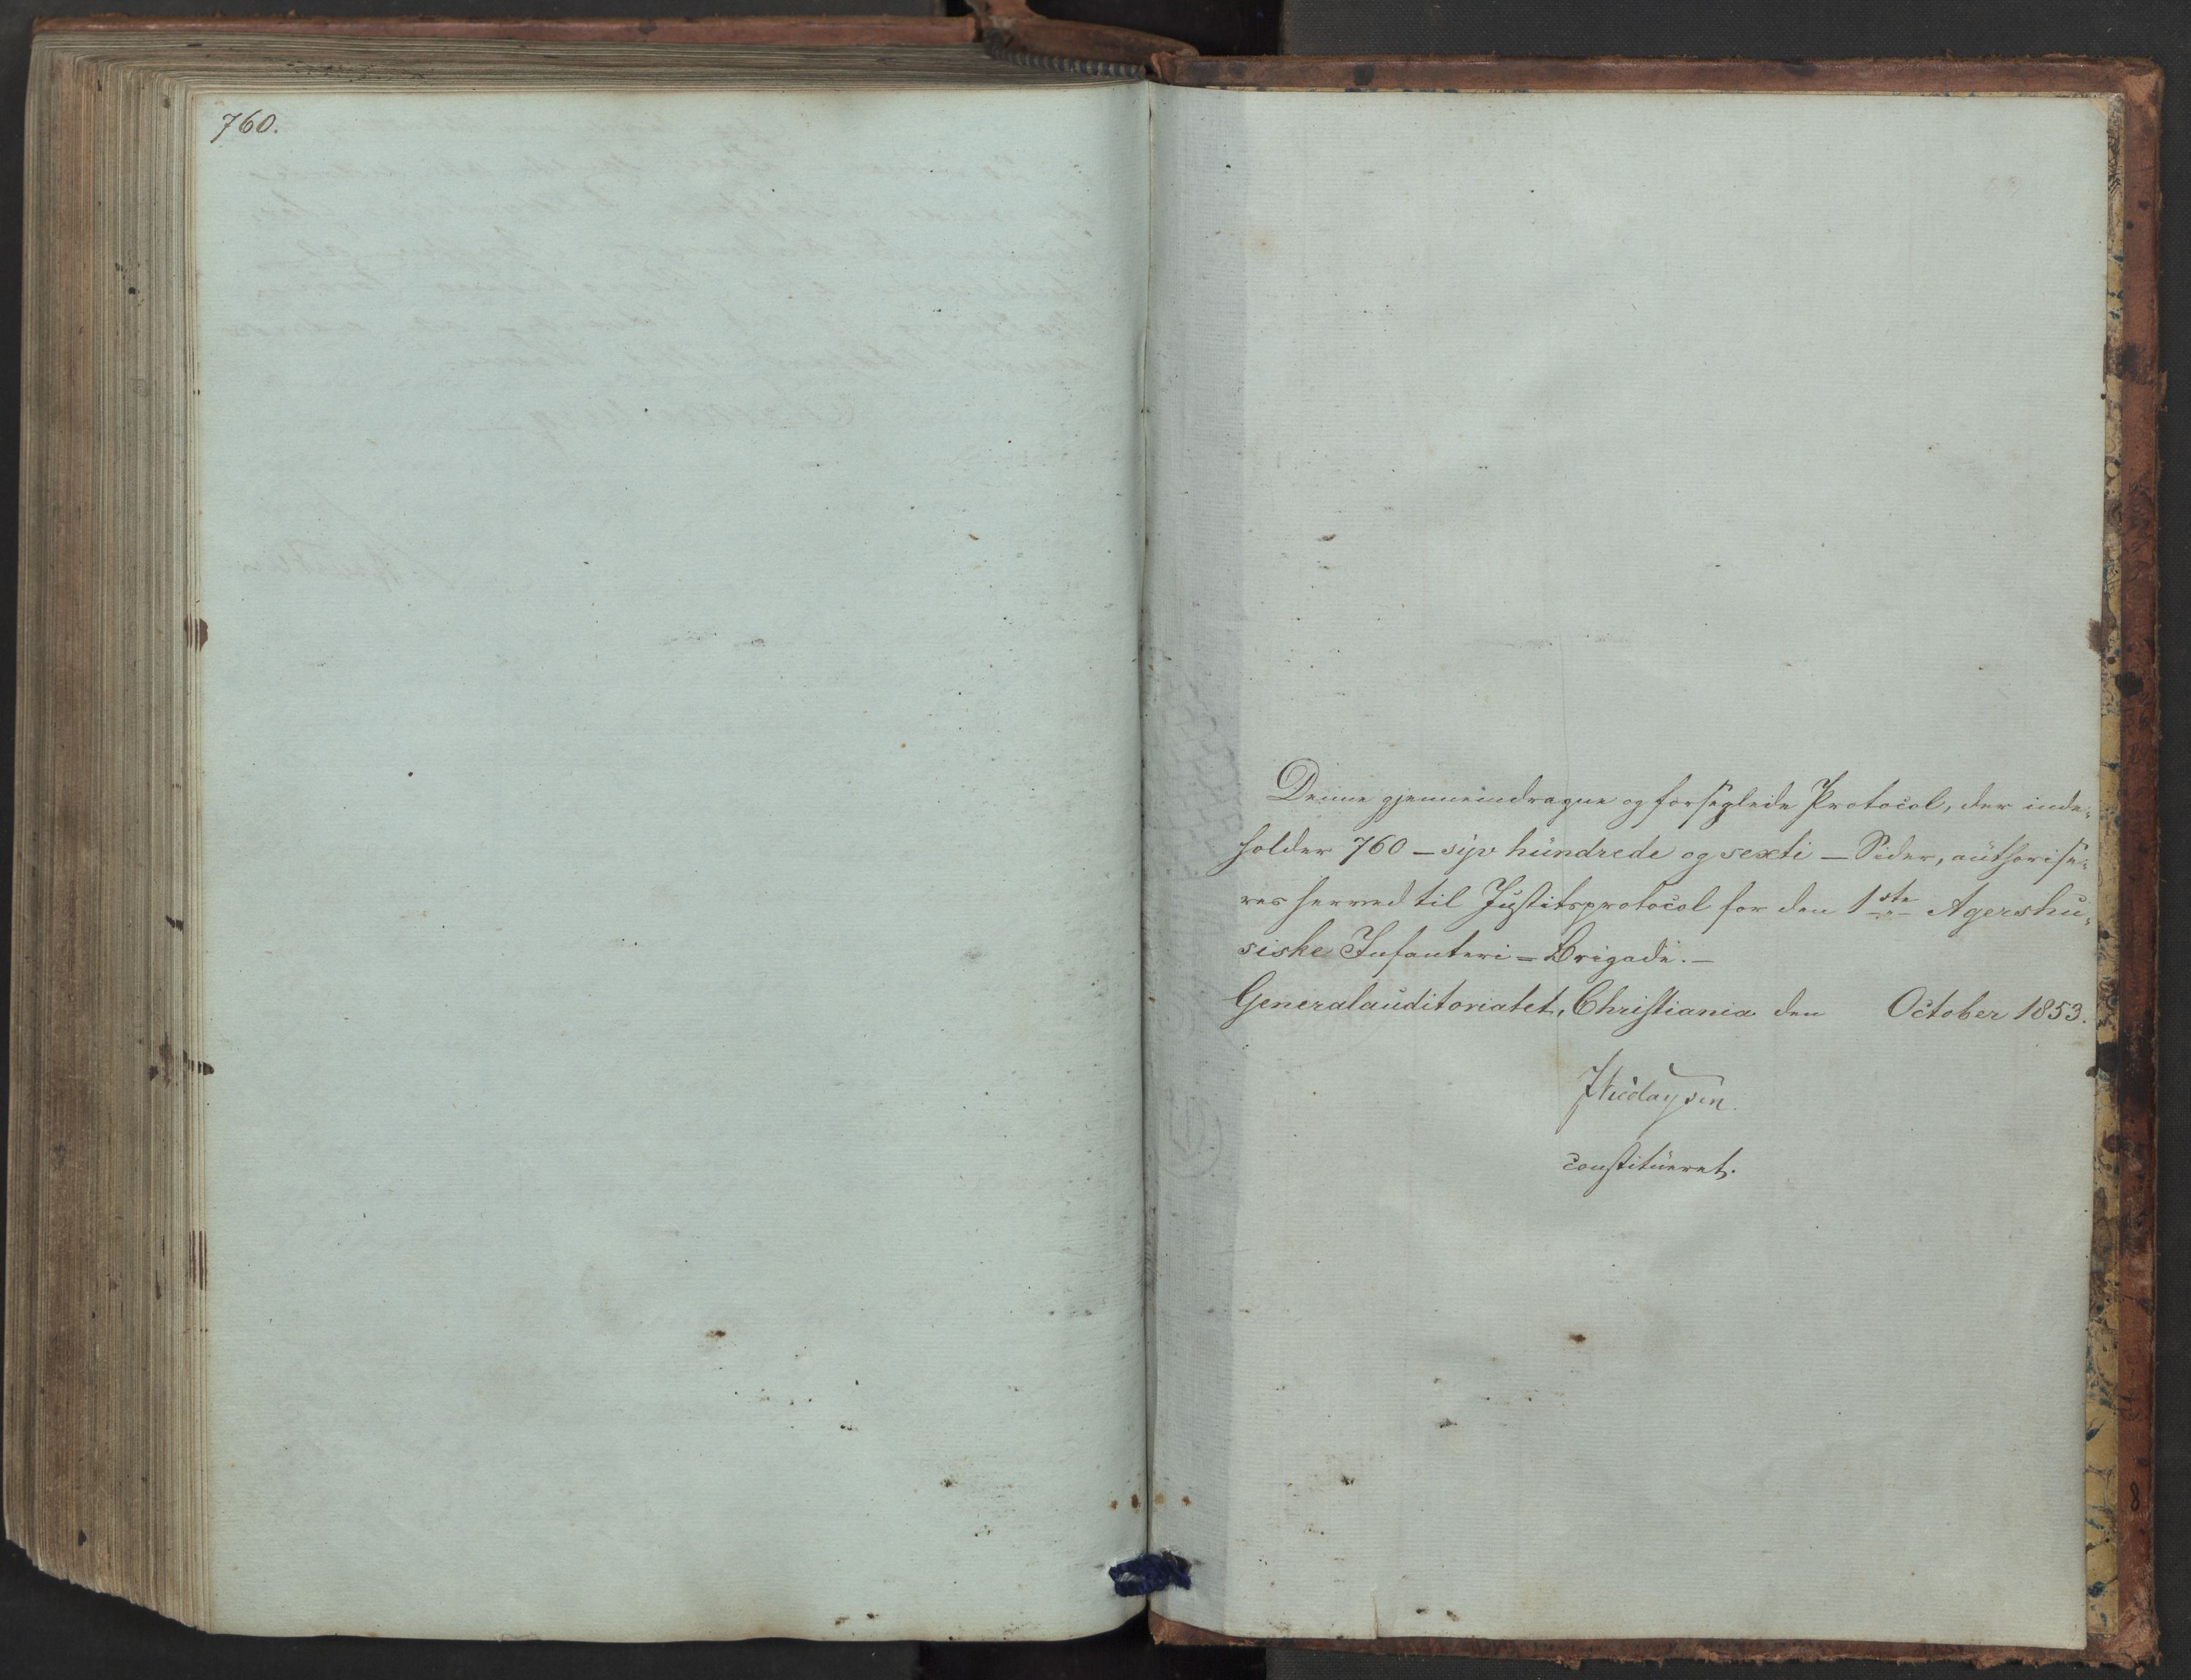 760.
Denne gjennemdragne og forseglede Protocol, der inde-
holder 760 – syv hundrede og sexti – Sider, authorise-
res herved til Justitsprotocol for den 1ste Agershu-
siske Infanteri=Brigade. –
Generalauditoriatet, Christiania den October 1853.
Nicolaysen
constitueret.
8